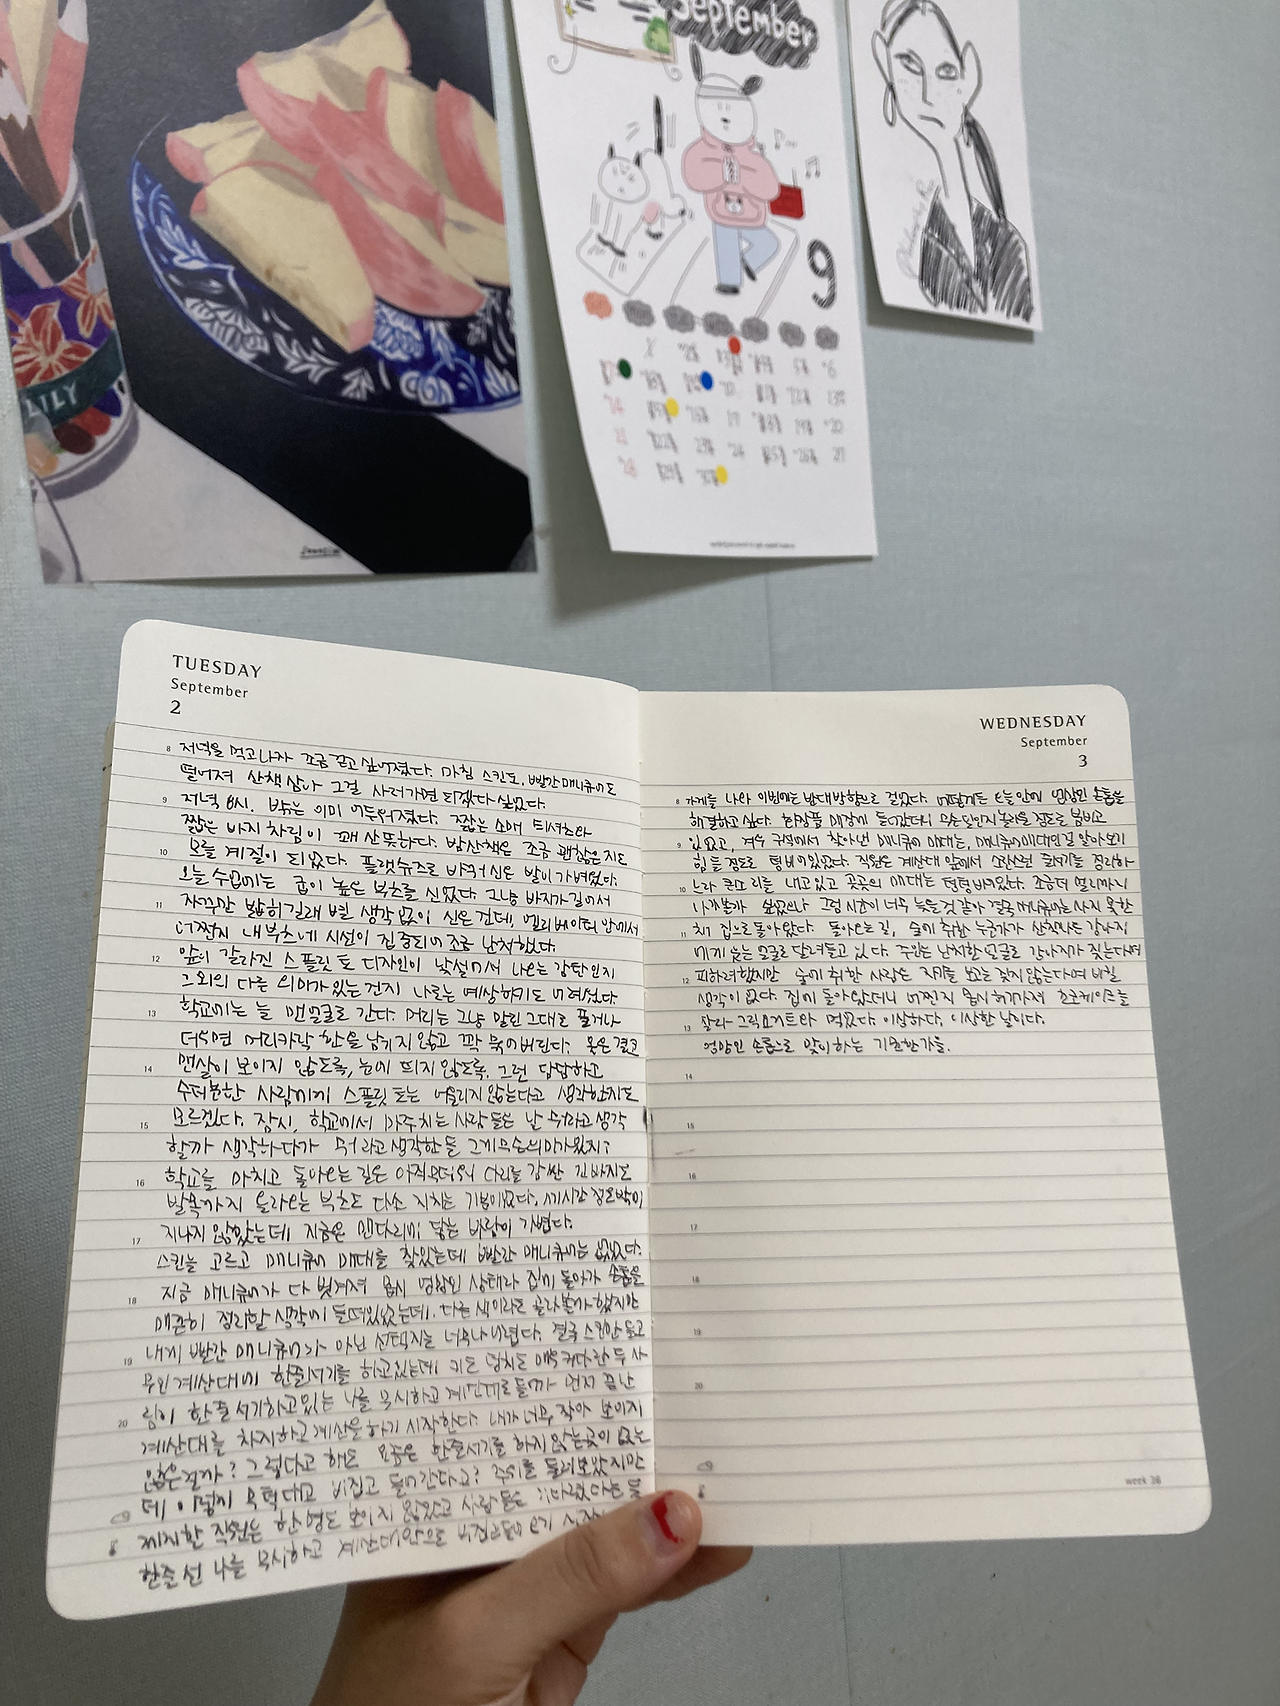 September
9
LILY
TUESDAY
September
2
저녁을 먹고 나자 조금 걷고 싶어졌다. 마침 스킨도, 빨간 매니큐어도
떨어져 산책 삼아 그걸 사러가면 되겠다 싶었다.
저녁 8시. 밖은 이미 어두워졌다. 짧은 소매 티셔츠와
짧은 바지 차림이 꽤 산뜻하다. 밤산책은 조금 괜찮은지도
모를 계절이 되었다. 플랫슈즈로 바꿔 신은 발이 가벼웠다.
오늘 수업에는 굽이 높은 부츠를 신었다. 그냥 바지가 길어서
자꾸만 밟히길래 별 생각 없이 신은 건데, 엘리베이터 안에서
어쩐지 내 부츠에 시선이 집중되어 조금 난처했다.
앞이 갈라진 스플릿 토 디자인이 낯설어서 나오는 감탄인지
그 외의 다른 의미가 있는 건지 나로는 예상하기도 어려웠다
학교에는 늘 맨얼굴로 간다. 머리는 그냥 말린 그대로 풀거나
더우면 머리카락 한올 남기지 않고 꽉 묶어버린다. 옷은 결코
맨살이 보이지 않도록, 눈에 띄지 않도록. 그런 답답하고
수더분한 사람에게 스플릿 토는 어울리지 않는다고 생각한지도
모르겠다. 잠시, 학교에서 마주치는 사람들은 날 뭐라고 생각
할까 생각하다가 뭐라고 생각한들 그게 무슨 의미가 있지?
학교를 마치고 돌아오는 길은 아직 무더워 다리를 감싼 긴 바지도
발목까지 올라오는 부츠도 다소 지치는 기분이었다. 시간 정도밖에
지나지 않았는데 지금은 맨다리에 닿는 바람이 가볍다.
스킨을 고르고 매니큐어 매대를 찾았는데 빨간 매니큐어는 없었다.
지금 매니큐어가 다 벗겨져 몹시 엉망인 상태라 집에 돌아가 손톱을
매끈히 정리할 생각에 들떠있었는데. 다른 색이라도 골라볼까 했지만
내게 빨간 매니큐어가 아닌 선택지는 너무나 어렵다. 결국 스킨만 들고
무인계산대에 한줄서기를 하고있는데 키도 덩치도 매우 커다란 두 사
람이 한줄서기하고있는 나를 무시하고 계산대로 들어가 먼저 끝난
계산대를 차지하고 계산을 하기 시작한다. 내가 너무 작아 보이지
않은 걸까? 그렇다고 해도 요즘은 한줄서기를 하지 않는 곳이 없는
데 이렇게 무턱대고 비집고 들어간다고? 주위를 둘러보았지만
제지할 직원은 한명도 보이지 않았고 사람들은 기다렸다는 듯
한줄 선 나를 무시하고 계산대 앞으로
WEDNESDAY
September
3
가게를 나와 이번에는 반대방향으로 걸었다. 어떻게든 오늘 안에 엉망인 손톱을
해결하고 싶다.
있었고, 겨우 구석에서 찾아낸 매니큐어 매대는, 매니큐어 매대인걸 알아보기
힘들 정도로 텅 비어있었다. 직원은 계산대 앞에서
느라 큰소리를 내고 있고 곳곳의 매대는 텅텅 비어있었다. 조금 더 멀리까지
나가볼까 싶었으나 그럼 시간이 너무 늦을 것 같아 결국 매니큐어는 사지 못한
채 집으로 돌아왔다. 돌아오는 길, 술에 취한 누군가가 산책하는 강아지
에게 웃는 얼굴로 달려들고 있다. 주인은 난처한 얼굴로 강아지가 짖는다며
피하려했지만 술에 취한 사람은 자기를 보고는 짖지 않는다며 비킬
생각이 없다. 집에 돌아왔더니 어쩐지 몹시 허기가져 초코케이크를
잘라 그릭요거트와 먹었다. 이상하다. 이상한 날이다.
엉망인 손톱으로 맞이하는 기울한 가을.
week 36